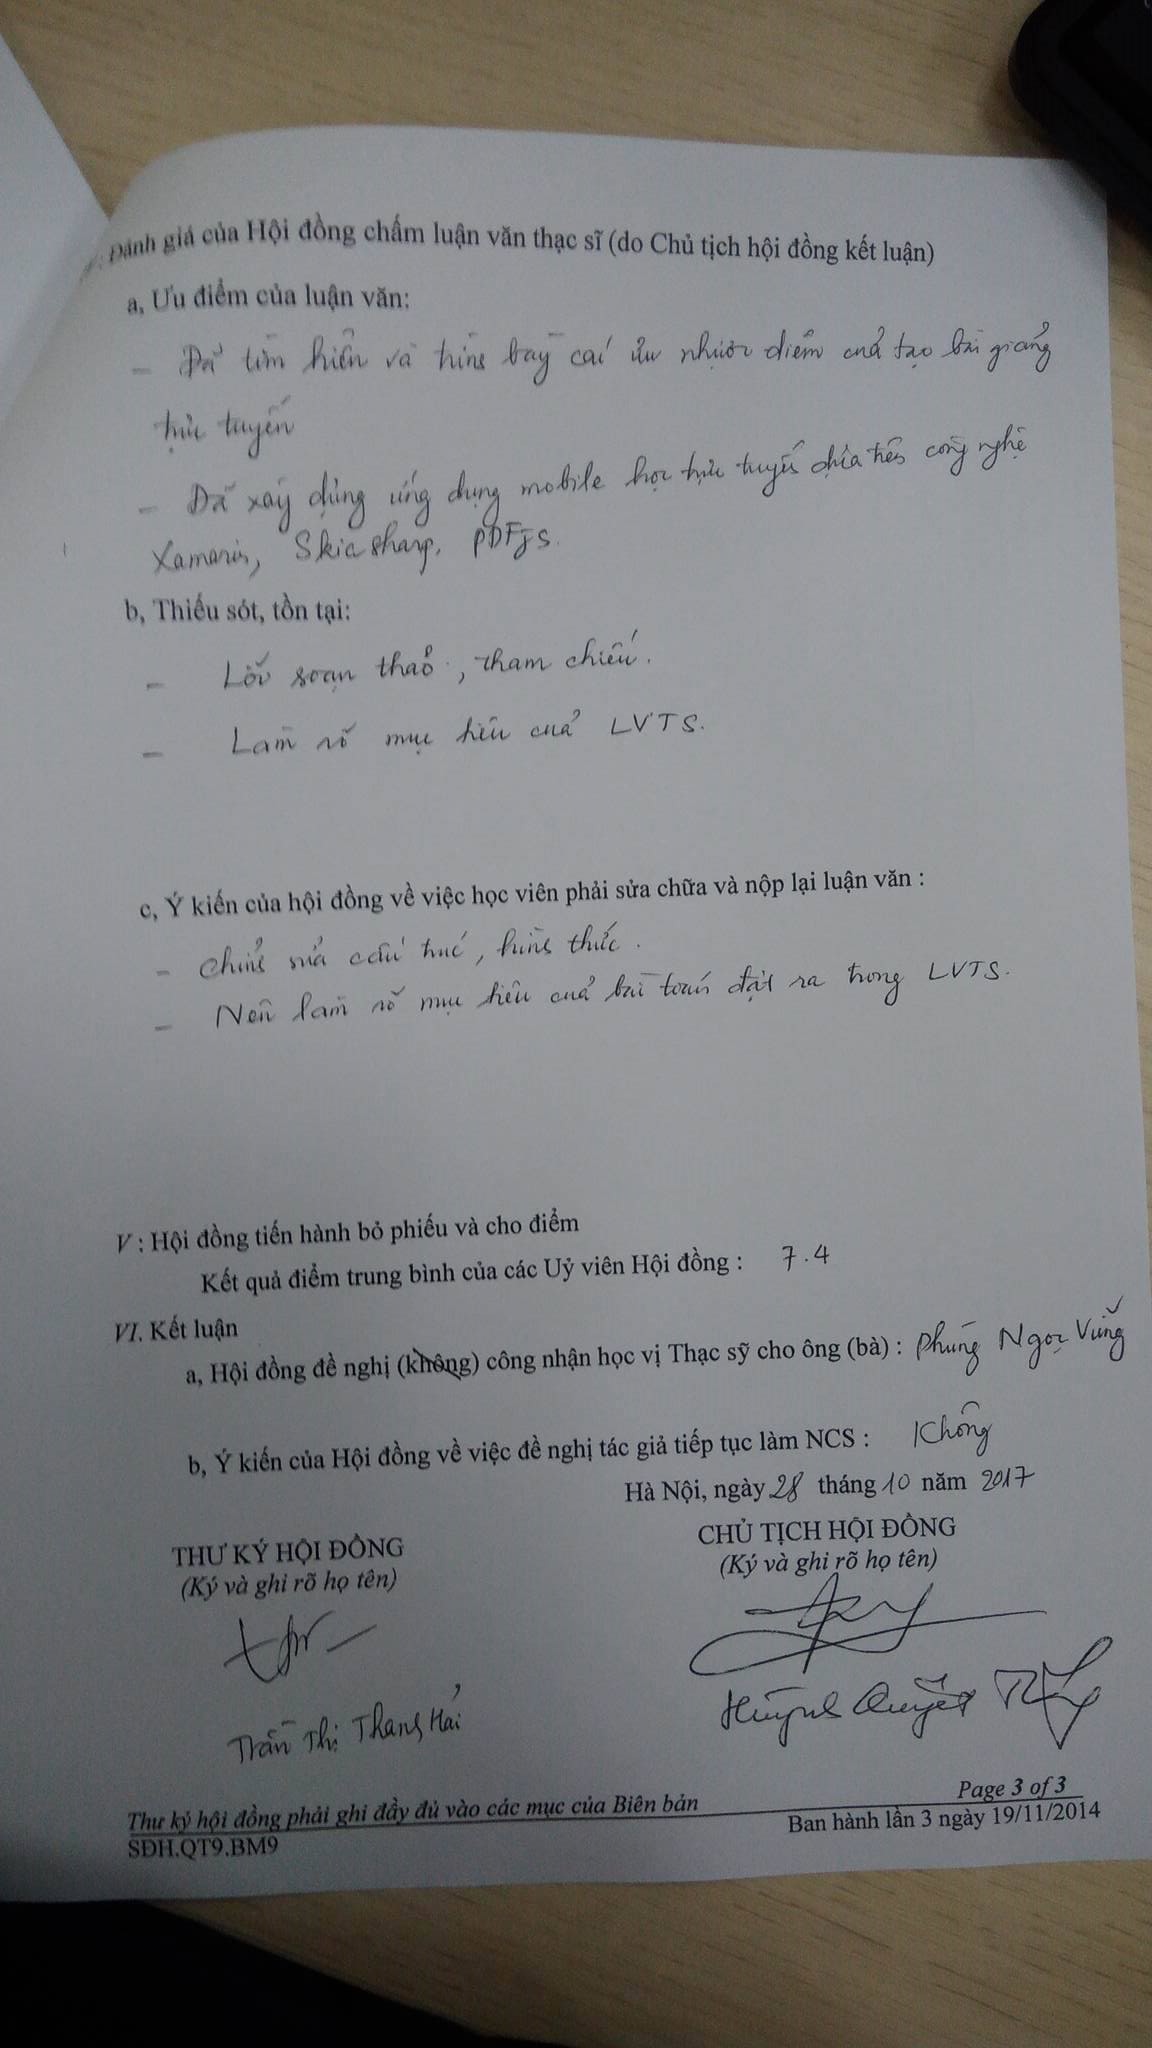 Đánh giá của Hội đồng chấm luận văn thạc sĩ (do Chủ tịch hội đồng kết luận)
a, Ưu điểm của luận văn:
- Đã tìm hiểu và trình bày các ưu nhược điểm của tạo bài giảng
trực tuyến
- Đã xây dựng ứng dụng mobile học trực tuyến dựa trên công nghệ
Xamarin, Skia sharp, PDFjs.
b, Thiếu sót, tồn tại:
- Lỗi soạn thảo, tham chiếu.
- Làm rõ mục tiêu của LVTS.
c, Ý kiến của hội đồng về việc học viên phải sửa chữa và nộp lại luận văn :
- Chỉnh sửa cấu trúc, hình thức.
- Nên làm rõ mục tiêu của bài toán đặt ra trong LVTS.
V : Hội đồng tiến hành bỏ phiếu và cho điểm
Kết quả điểm trung bình của các Uỷ viên Hội đồng : 7.4
VI. Kết luận
a, Hội đồng đề nghị (không) công nhận học vị Thạc sỹ cho ông (bà) : Phùng Ngọc Vững
b, Ý kiến của Hội đồng về việc đề nghị tác giả tiếp tục làm NCS : Không
Hà Nội, ngày 28 tháng 10 năm 2017
THƯ KÝ HỘI ĐỒNG
(Ký và ghi rõ họ tên)
CHỦ TỊCH HỘI ĐỒNG
(Ký và ghi rõ họ tên)
Trần Thị Thanh Hải
Huỳnh Quyết
Thư ký hội đồng phải ghi đầy đủ vào các mục của Biên bản
SĐH.QT9.BM9
Page 3 of 3
Ban hành lần 3 ngày 19/11/2014